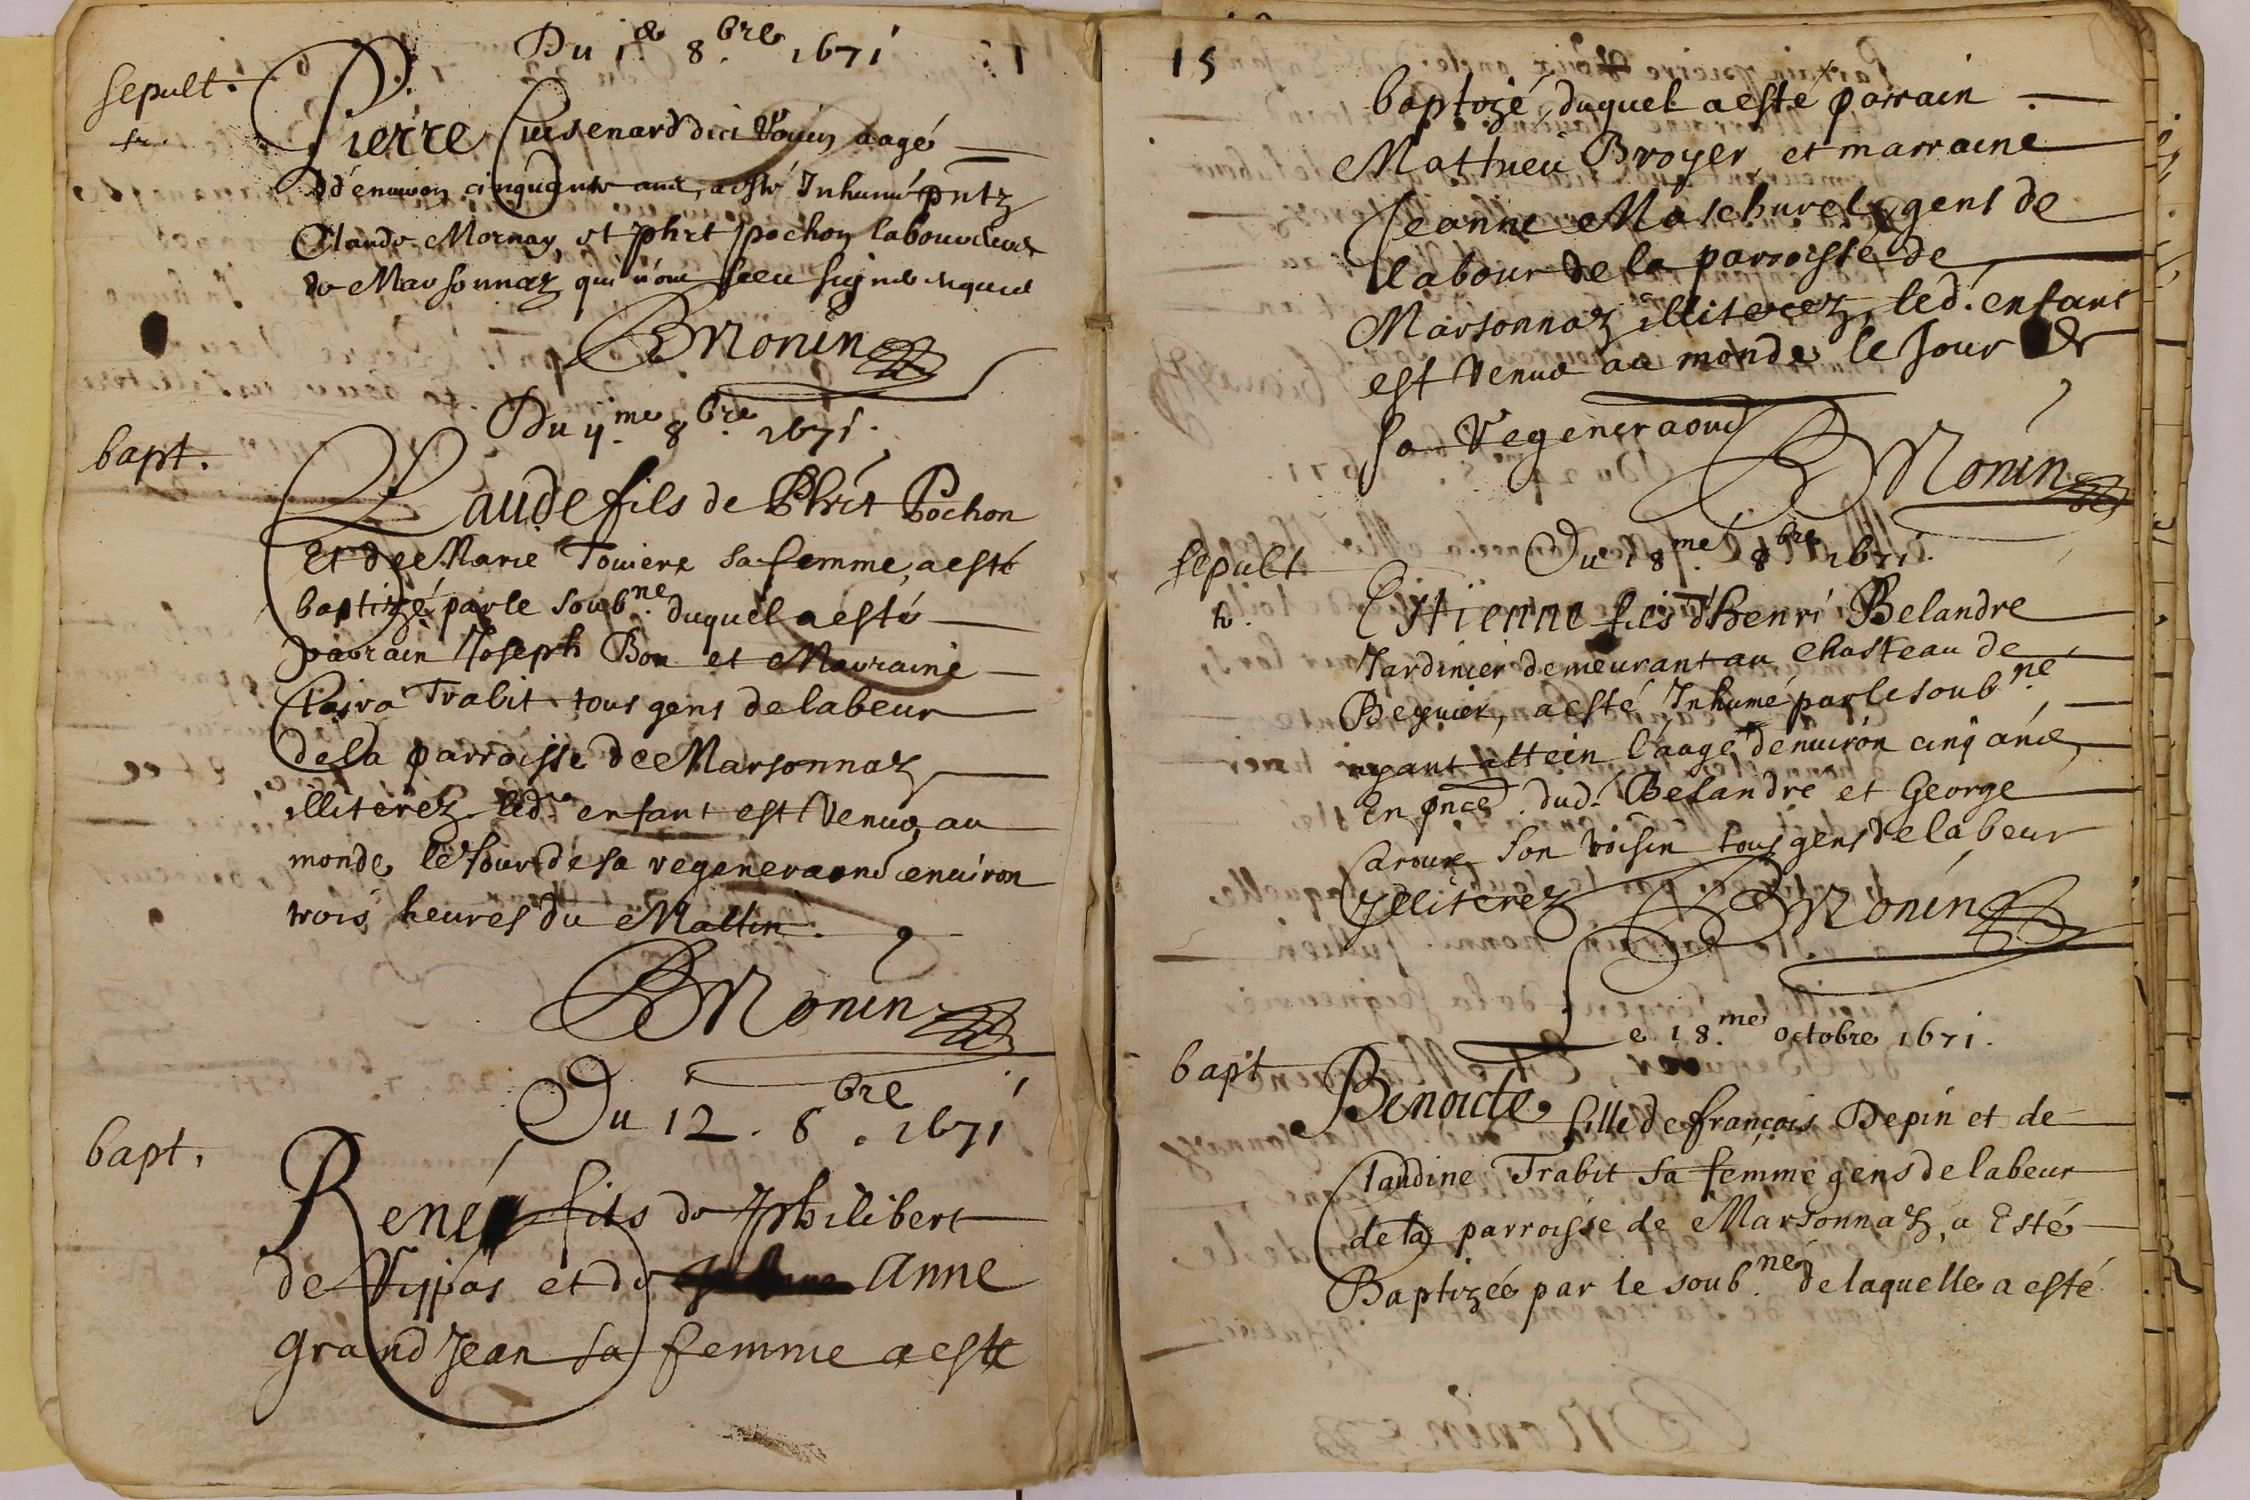 Du 1er 8.bre 1671
sepult.
Pierre Cuisenard dict Vouin aagé
d'enuiron cinquante ans, a esté Inhumé pntz
Claude Mornay, et phrt pochon laboureurs
de Marsonnaz qui n'ont sceu signer requis
BMonin
Du 4.me 8.bre 1671.
bapt.
Claude fils de Phrt Pochon
et de Marie Touiere sa femme, a esté
baptizé par le soub.ne duquel a esté
parrain Joseph Bon et Marraine
Claira Trabit tous gens de labeur
de la parroisse de Marsonnaz
illiterez led. enfant est Venue au
monde le Jour de sa regeneraond enuiron
trois heures du Mattin.
BMonin
Du 12. 8.bre 1671
bapt.
René fils de philibert
de Vijpas et de Anne
Grand Jean sa femme a esté
15
baptizé, duquel a esté parrain
Mathieu Broyer, et marraine
Jeanne Maschurel gens de
labour de la parroisse de
Marsonnaz illiterez, led. enfant
est Venue au monde le Jour de
sa regeneraond
BMonin
sepult
Du 18.me 8.bre 1671.
h.
Estienne fils d'henri Belandre
Jardinier demeurant au chasteau de
Beguier, a esté Inhumé par le soub.né
ayant attein l'aage d'enuiron cinq ans,
En pnce dud. Belandre et George
Caroux son voisin tous gens de labeur
Jlliterez
BMonin
Le 18.me octobre 1671.
bapt
Benoicte fille de françois Depin et de
Claudine Trabit sa femme gens de labeur
de la parroisse de Marsonnaz, a Esté
Baptizée par le soub.né de laquelle a esté